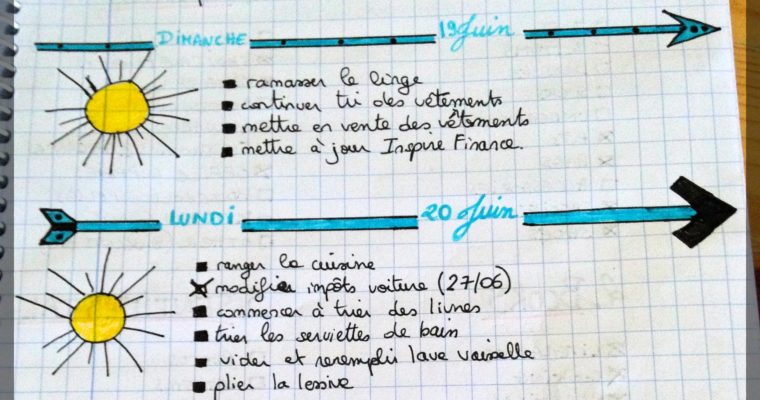 DIMANCHE 19 Juin
ramasser le linge
continuer tri des vêtements
mettre en vente des vêtements
mettre à jour Inspire Finance.
LUNDI 20 Juin
ranger la cuisine
modifier impôts voiture (27/06)
commencer à trier des livres
trier les serviettes de bain
vider et reremplir lave vaisselle
plier la lessive